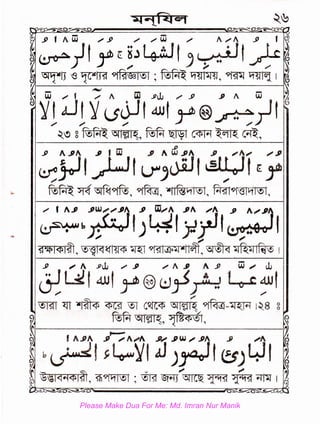 মনযিল ২৬
عٰلِمُ الْغَيْبِ وَالشَّهَادَةِ ۚ هُوَ الرَّحْمٰنُ
অদৃশ্য ও দৃশ্যের পরিজ্ঞাতা ; তিনিই দয়াময়, পরম দয়ালু ।
الرَّحِيْمُ ﴿﴾ هُوَ اللّٰهُ الَّذِيْ لَا اِلٰهَ اِلَّا
২৩ ঃ তিনিই আল্লাহ্, তিনি ছাড়া কোন ইলাহ নেই,
هُوَ ۚ اَلْمَلِكُ الْقُدُّوْسُ السَّلٰمُ الْمُؤْمِنُ
তিনিই সর্ব অধিপতি, পবিত্র, শান্তিদাতা, নিরাপত্তাদাতা,
الْمُهَيْمِنُ الْعَزِيْزُ الْجَبَّارُ الْمُتَكَبِّرُ ؕ سُبْحٰنَ
রক্ষাকারী,
اللّٰهِ عَمَّا يُشْرِكُوْنَ ﴿﴾ هُوَ اللّٰهُ الْخَالِقُ
তারা যা শরীক করে তা থেকে আল্লাহ পবিত্র-মহান ।২৪ ঃ
তিনি আল্লাহ্, সৃষ্টিকর্তা,
الْبَارِئُ الْمُصَوِّرُ لَهُ الْاَسْمَآءُ الْحُسْنٰى ؕ
উদ্ভাবনকারী, রূপদাতা ; তাঁর জন্য আছে সুন্দর সুন্দর নাম ।
Please Make Dua For Me: Md. Imran Nur Manik